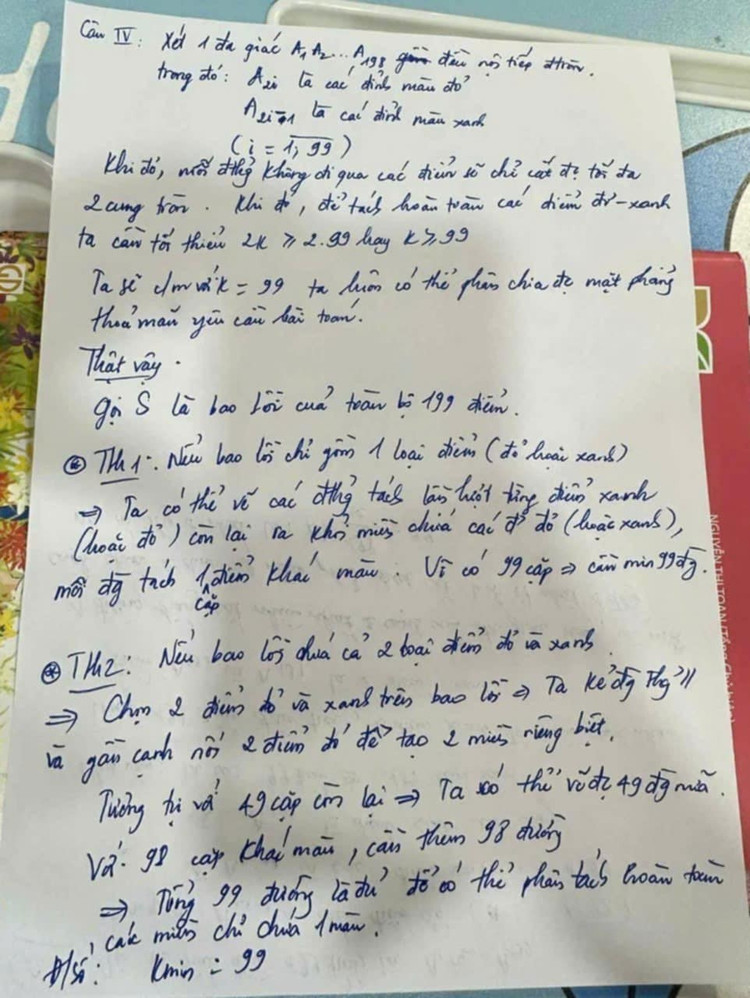 Câu IV: Xét 1 đa giác A₁A₂...A₁₉₈ đều nội tiếp đtròn.
trong đó: A₂ᵢ là các đỉnh màu đỏ
A₂ᵢ₋₁ là các đỉnh màu xanh
(i = 1,99)
Khi đó, mỗi đthg không đi qua các điểm sẽ chỉ cắt đc tối đa
2 cung tròn. Khi đó, để tách hoàn toàn các điểm đỏ-xanh
ta cần tối thiểu 2k ≥ 2.99 hay k ≥ 99
Ta sẽ c/m với k = 99 ta luôn có thể phân chia đc mặt phẳng
thoả mãn yêu cầu bài toán.
Thật vậy.
Gọi S là bao lồi của toàn bộ 199 điểm.
⊛ TH1: Nếu bao lồi chỉ gồm 1 loại điểm (đỏ hoặc xanh)
⇒ Ta có thể vẽ các đthg tách lần lượt từng điểm xanh
(hoặc đỏ) còn lại ra khỏi miền chứa các đ' đỏ (hoặc xanh),
mỗi đg tách 1 cặp điểm khác màu. Vì có 99 cặp ⇒ cần min 99 đg.
⊛ TH2: Nếu bao lồi chứa cả 2 loại điểm đỏ và xanh
⇒ Chọn 2 điểm đỏ và xanh trên bao lồi ⇒ Ta kẻ đg thg //
và gần cạnh nối 2 điểm đó để tạo 2 miền riêng biệt.
Tương tự với 49 cặp còn lại ⇒ Ta có thể vẽ đc 49 đg nữa.
Với 98 cặp khác màu, cần thêm 98 đường
⇒ Tổng 99 đường là đủ để có thể phân tách hoàn toàn
các miền chỉ chứa 1 màu.
Đ/số: Kmin = 99
NGUYỄN THỊ TOAN